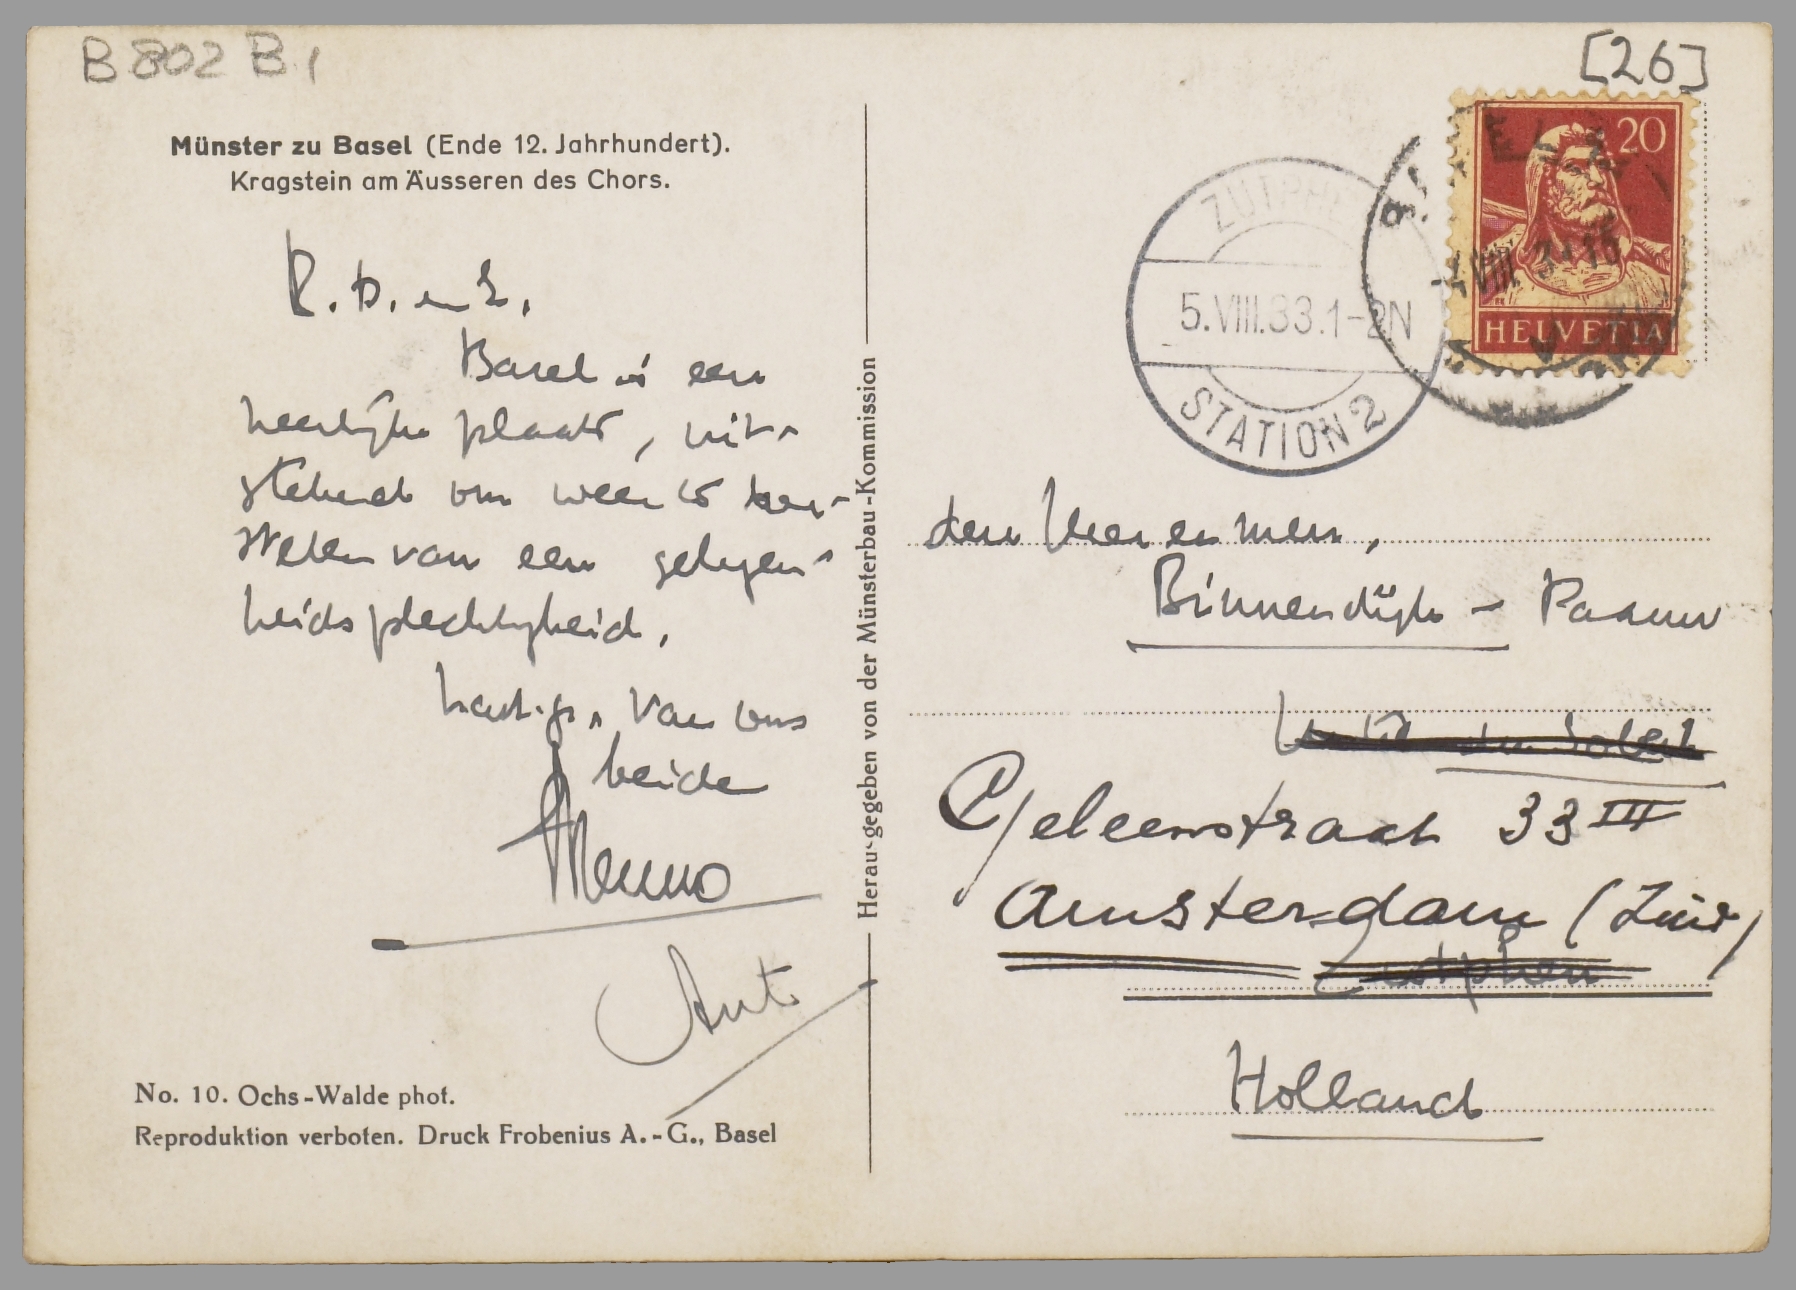 B 802 B 1
[26]
Münster zu Basel (Ende 12. Jahrhundert).
Kragstein am Äusseren des Chors.
Basel is een
heerlijke plaats, uit-
stekend om weer te her-
stellen van een gelegen-
heidsplechtigheid.
Hart. gr. van ons
beide
Menno
Ant
No. 10. Ochs-Walde phot.
Reproduktion verboten. Druck Frobenius A.-G., Basel
Herausgegeben von der Münsterbau-Kommission
20
HELVETIA
BASEL 2
VIII. 33
ZUTPHEN
5.VIII.33.1-2N
STATION 2
den Heer en Mevr.
Binnendijk - Paauw
Geleenstraat 33 III
Amsterdam (Zuid)
Zutphen
Holland